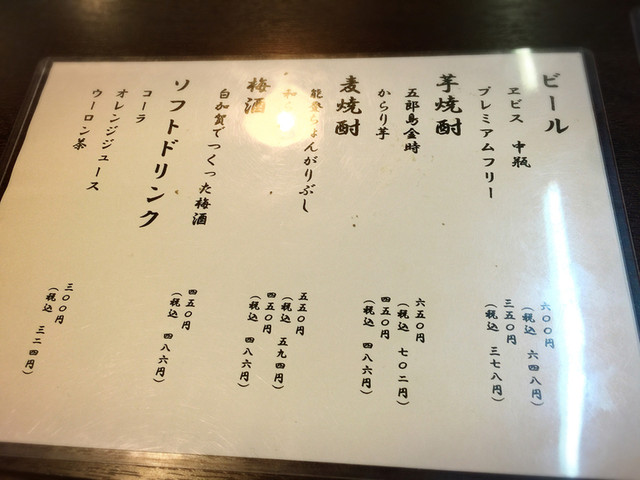 ビール
ヱビス 中瓶
六〇〇円
（税込 六四八円）
プレミアムフリー
三五〇円
（税込 三七八円）
芋焼酎
五郎島金時
六五〇円
（税込 七〇二円）
からり芋
四五〇円
（税込 四八六円）
麦焼酎
能登ちょんがりぶし
五五〇円
（税込 五九四円）
和
四五〇円
（税込 四八六円）
梅酒
白加賀でつくった梅酒
四五〇円
（税込 四八六円）
ソフトドリンク
コーラ
オレンジジュース
ウーロン茶
三〇〇円
（税込 三二四円）